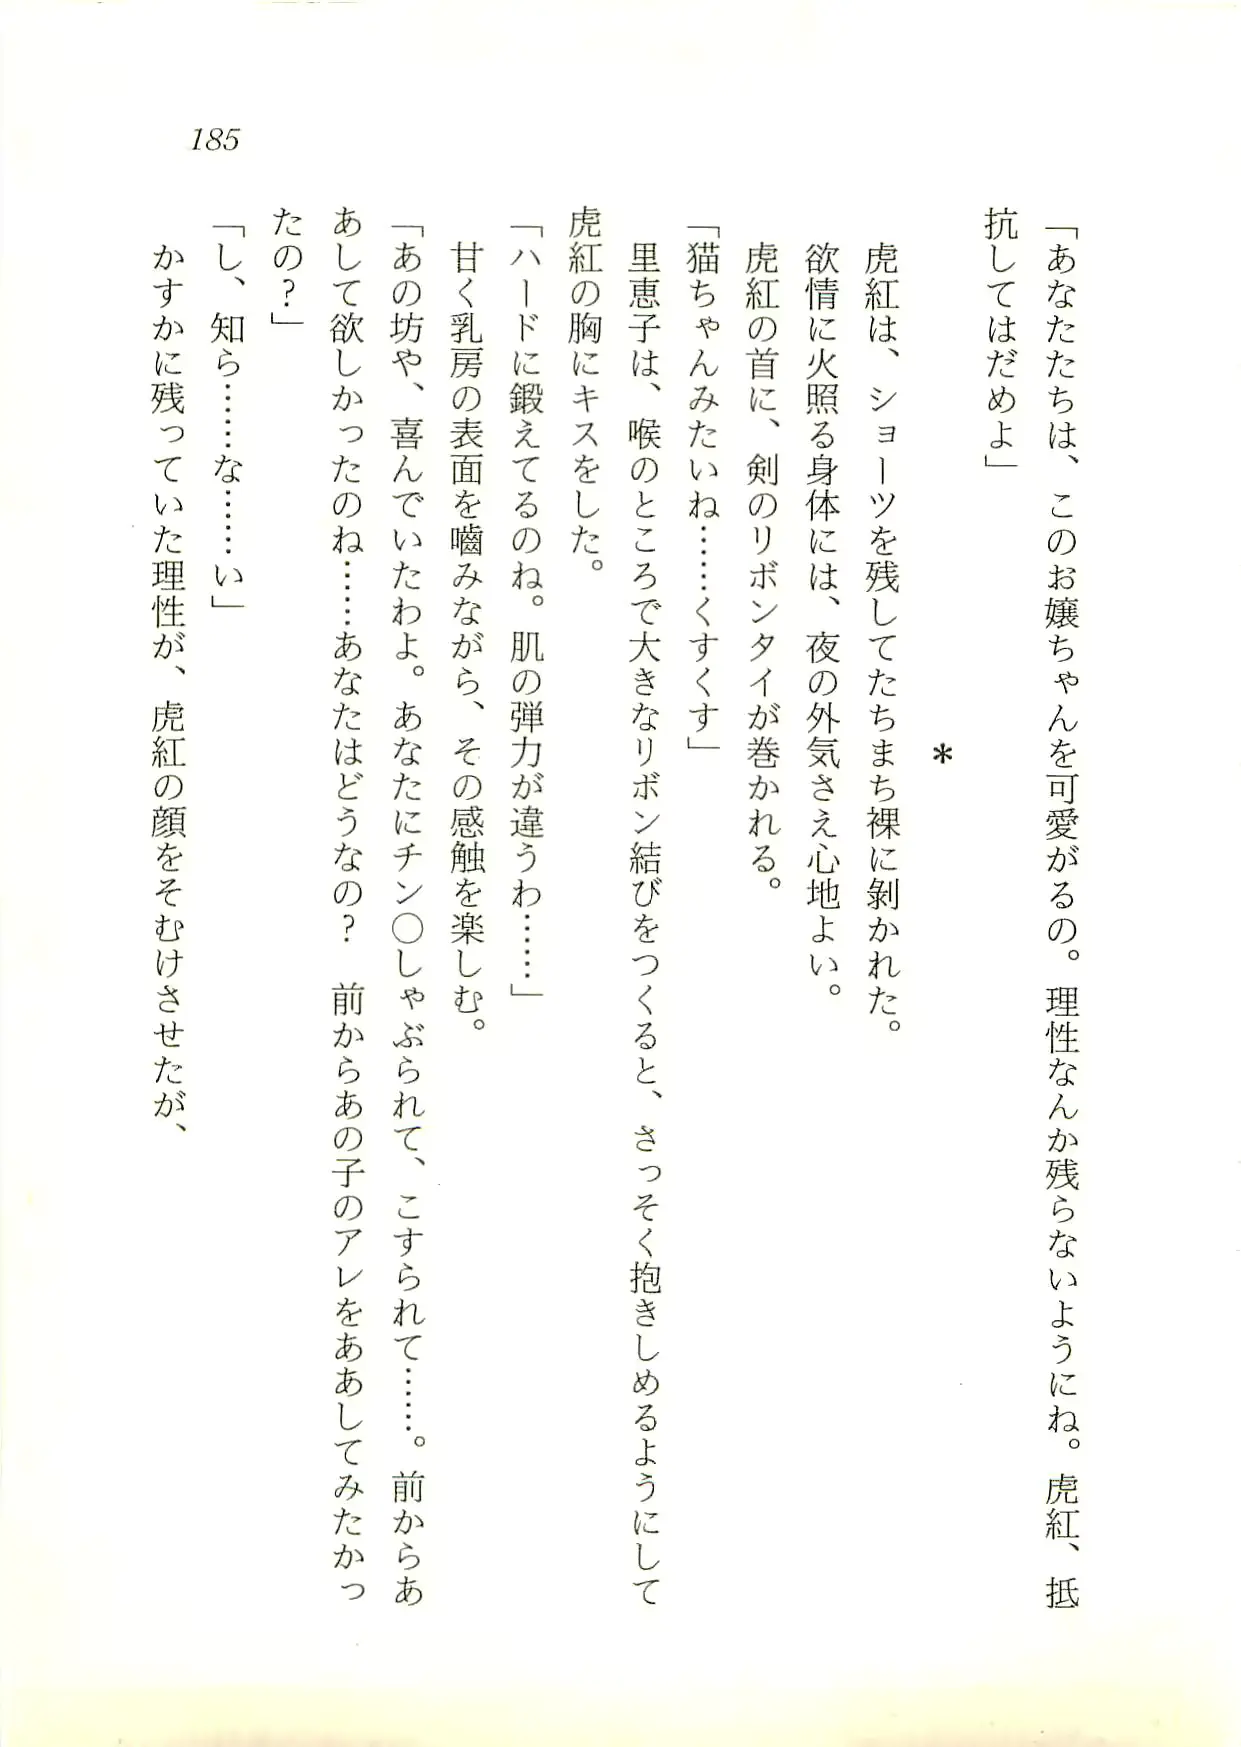 185
「あなたたちは、このお嬢ちゃんを可愛がるの。理性なんか残らないようにね。虎紅、抵
抗してはだめよ」
＊
虎紅は、ショーツを残してたちまち裸に剝かれた。
欲情に火照る身体には、夜の外気さえ心地よい。
虎紅の首に、剣のリボンタイが巻かれる。
「猫ちゃんみたいね……くすくす」
里恵子は、喉のところで大きなリボン結びをつくると、さっそく抱きしめるようにして
虎紅の胸にキスをした。
「ハードに鍛えてるのね。肌の弾力が違うわ……」
甘く乳房の表面を嚙みながら、その感触を楽しむ。
「あの坊や、喜んでいたわよ。あなたにチン○しゃぶられて、こすられて……。前からあ
あして欲しかったのね……あなたはどうなの？　前からあの子のアレをああしてみたかっ
たの？」
「し、知ら……な……い」
かすかに残っていた理性が、虎紅の顔をそむけさせたが、